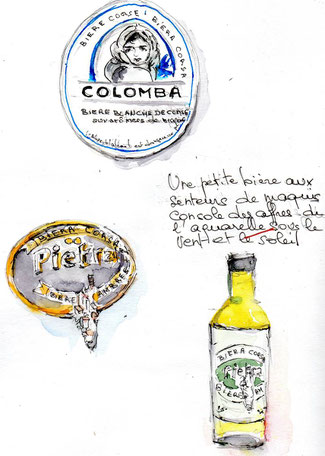 BIERE CORSE : BIERA CORSA
COLOMBA
BIERE BLANCHE DE CORSE
aux arômes de maquis
Une petite bière aux
senteurs de maquis
console des affres de
l'aquarelle sous le
vent et le soleil
BIERA CORSA
Pietra
BIERE AMBREE
BIERA CORSA
Pietra
BIERE